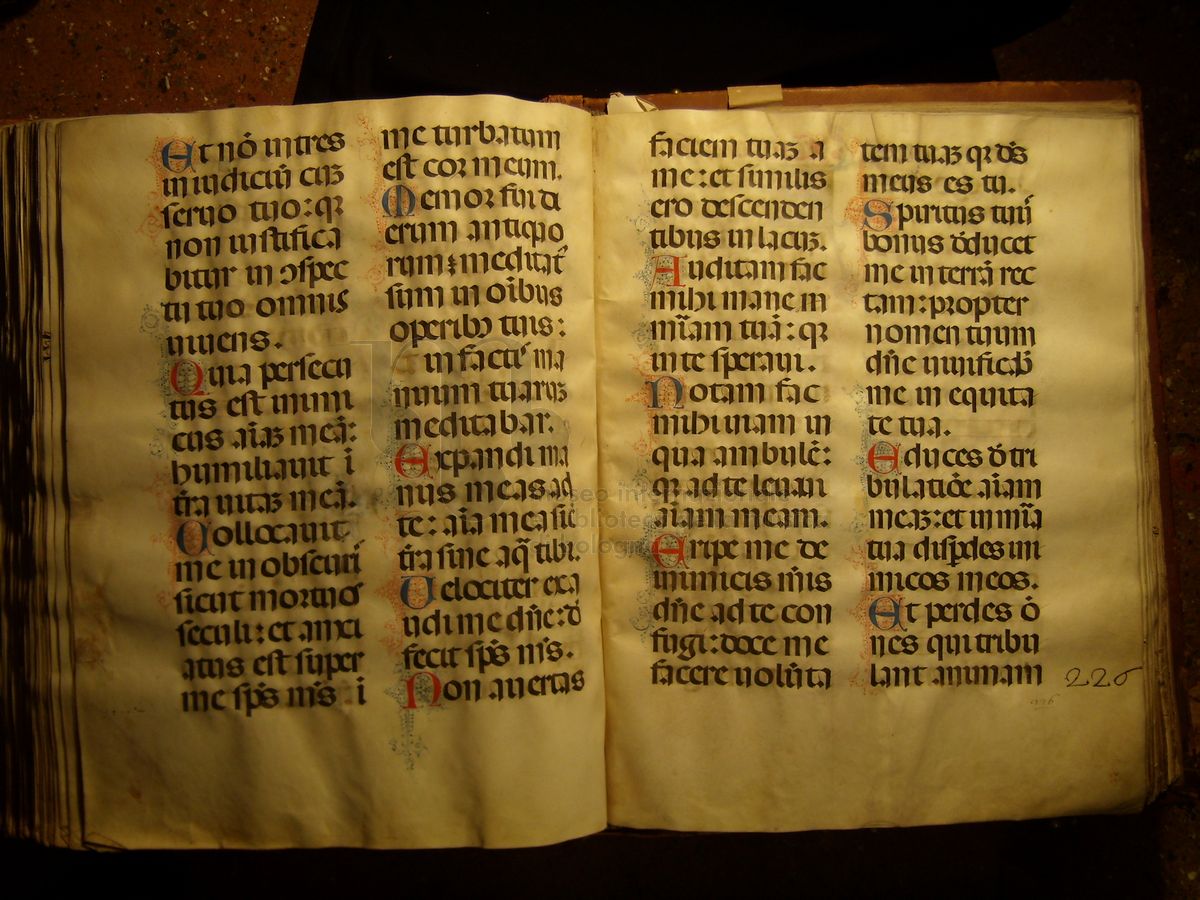 Et nō intres
in iudiciū cuꝫ
seruo tuo: qꝛ
non iustifica
bitur in ↄspec
tu tuo omnis
uiuens.
Quia persecu
tus est inimi
cus aīaꝫ meā:
humiliauit ī
tr̄a uitaꝫ meā.
Collocauit
me in obscuri
sicut mortuos
seculi: et anxi
atus est super
me sp̄s m̄s ī
me turbatum
est cor meum.
Memor fui di
erum antiquo
rum ⁊ meditat̄
sum in oībus
operibꝫ tuis:
in factis ma
nuum tuaruꝫ
meditabar.
Expandi ma
nus meas ad
te: aīa mea sic̄
tr̄a sine aq̄ tibi.
Velociter exa
udi me dn̄e: d̄
fecit sp̄s m̄s.
Non auertas
faciem tuaꝫ a
me: et similis
ero descenden
tibus in lacuꝫ.
Auditam fac
mihi mane m
m̄iam tuā: qꝛ
in te speraui.
Notam fac
mihi uiam in
qua ambulē:
qꝛ ad te leuaui
aīam meam.
Eripe me de
inimicis m̄is
dn̄e ad te con
fugi: doce me
facere uolūta
tem tuaꝫ qꝛ d̄s
meus es tu.
Spiritus tuus
bonus d̄ducet
me in terrā rec
tam: propter
nomen tuum
dn̄e uiuificab̄
me in equita
te tua.
Educes d̄ tri
bulatiōe aīam
meaꝫ: et in m̄ia
tua disp̄des ini
micos meos.
Et perdes ō
nes qui tribu
lant animam
226
226